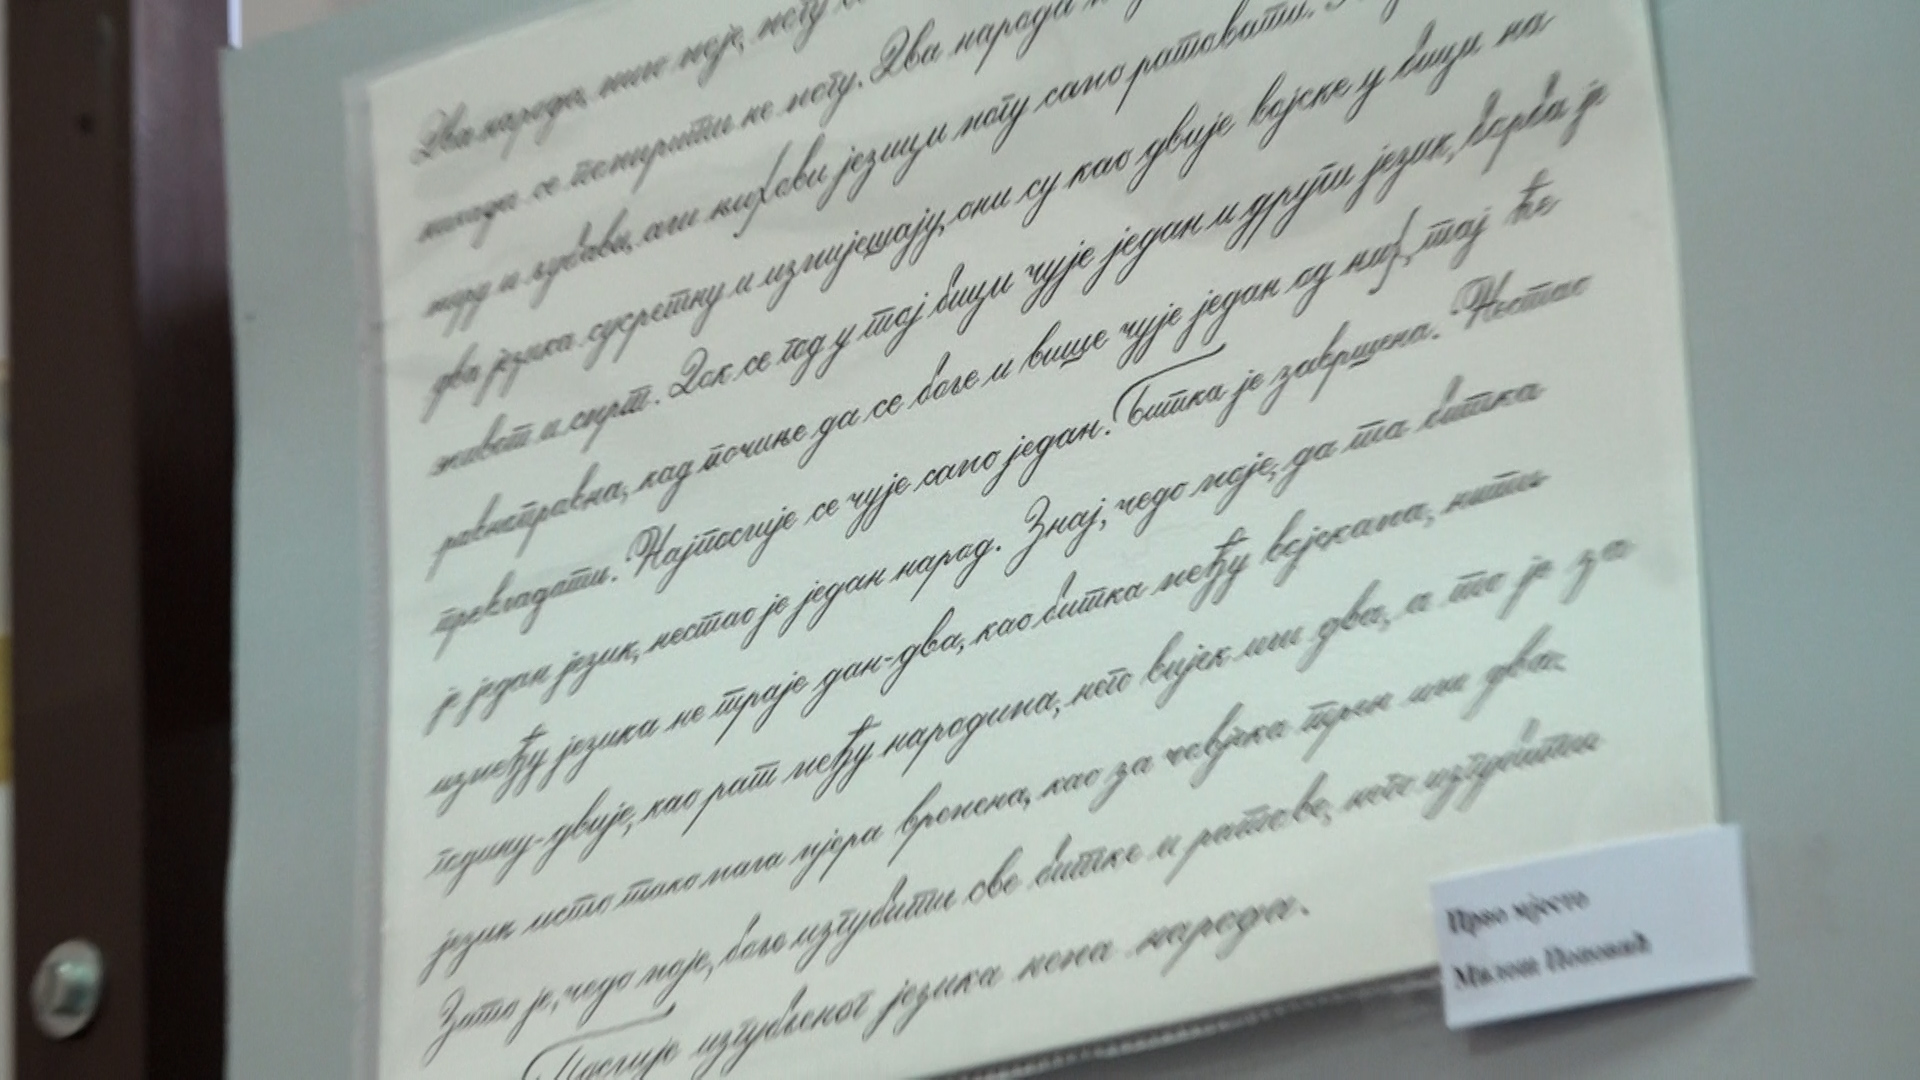 Два народа, мило моје, могу се
никада се помирити не могу. Два народа
миру и љубави, али њихови језици могу само ратовати.
два језика сусретну и измијешају, они су као двије војске у бици на
живот и смрт. Док се год у тој бици чује један и други језик, борба је
равноправна, кад почиње да се боље и више чује један од њих, тај ће
превладати. Најпослије се чује само један. Битка је завршена. Нестао
је један језик, нестао је један народ. Знај, чедо моје, да та битка
између језика не траје дан-два, као битка међу војскама, нити
годину-двије, као рат међу народима, него вијек или два, а то је за
језик исто тако мала мјера времена, као за човјека трен или два.
Зато је, чедо моје, боље изгубити све битке и ратове, него изгубити
Послије изгубљеног језика нема народа.
Прво мјесто
Милош Поповић